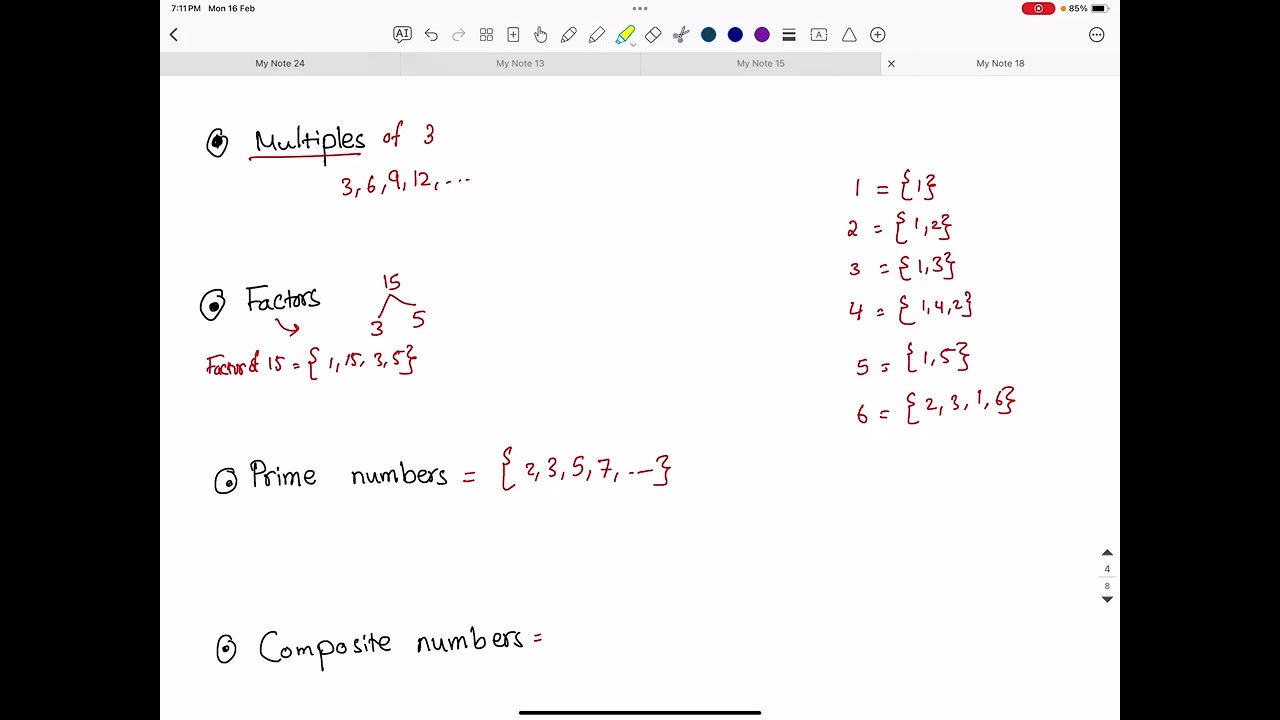 7:11 PM Mon 16 Feb
85%
AI
A
My Note 24
My Note 13
My Note 15
My Note 18
Multiples of 3
3, 6, 9, 12, ...
Factors
15
3 5
Factor of 15 = { 1, 15, 3, 5}
1 = {1}
2 = {1,2}
3 = {1,3}
4 = {1,4,2}
5 = {1,5}
6 = {2,3,1,6}
Prime numbers = { 2, 3, 5, 7, ...}
Composite numbers =
4
8